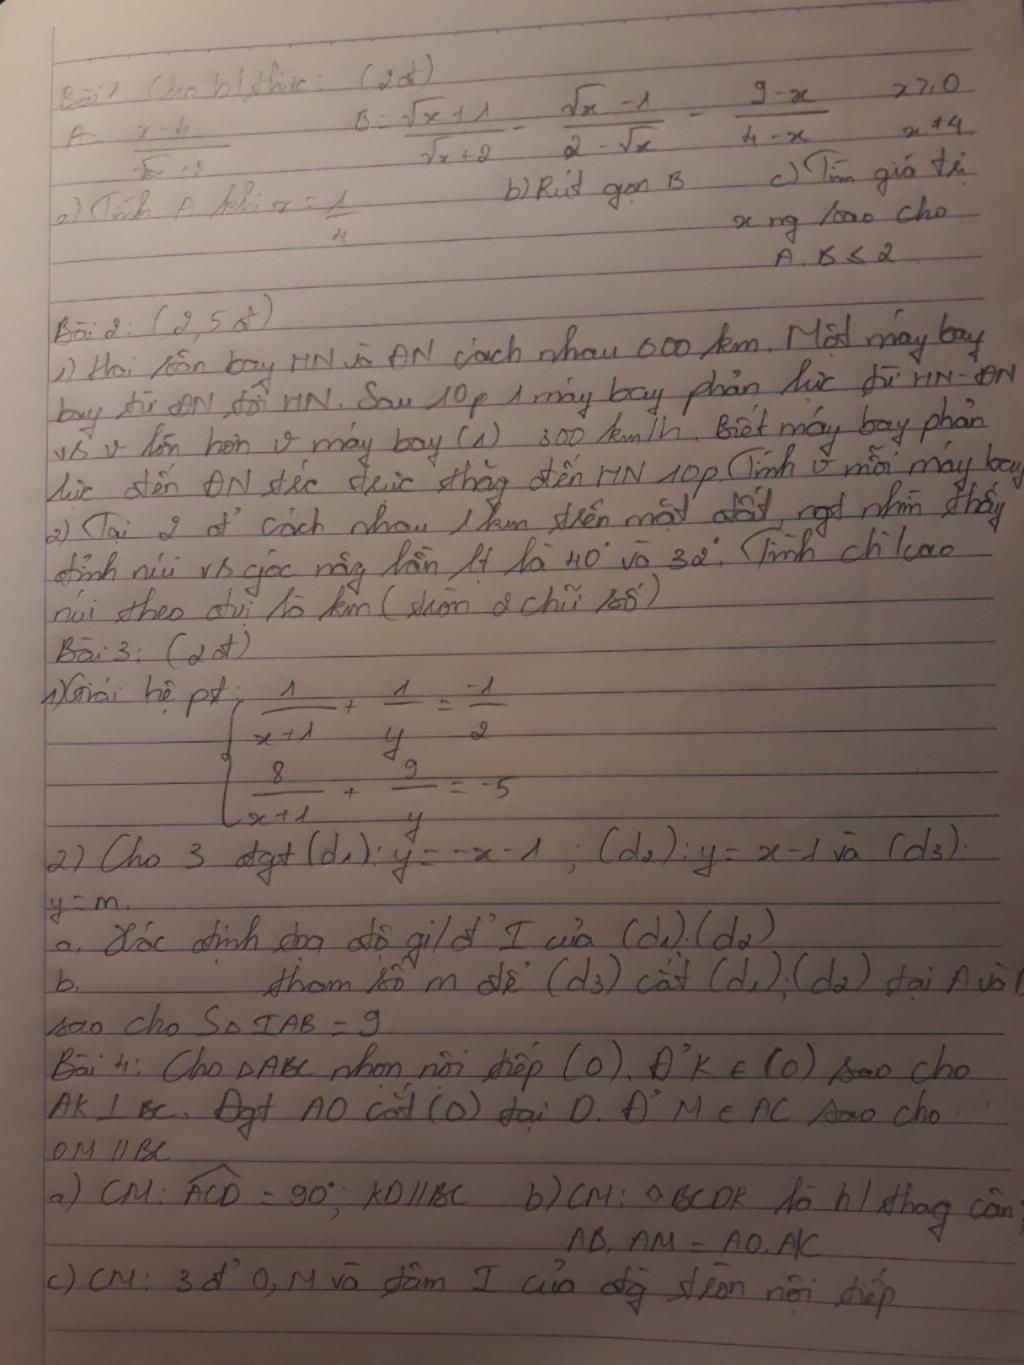 Bài 1. Cho b/thức: (2đ)
A = (x-4)/(√x+2) B = (√x+1)/(√x+2) - (√x-1)/(2-√x) - (9-x)/(4-x) x≥0
x≠4
a) Tính A khi x = 1/4 b) Rút gọn B c) Tìm giá trị
x ng sao cho
A.B ≤ 2
Bài 2: (2,5đ)
1) Hai sân bay HN và ĐN cách nhau 600 km. Một máy bay
bay từ ĐN tới HN. Sau 10p 1 máy bay phản lực từ HN-ĐN
vs v lớn hơn v máy bay (1) 300 km/h. Biết máy bay phản
lực đến ĐN trc trực thăg đến HN 10p. Tính v mỗi máy bay
2) Tại 2 đ' cách nhau 1km trên mặt đất, ngt nhìn thấy
đỉnh núi vs góc nâg lần lt là 40° và 32°. Tính ch/cao
núi theo đvị là km (tròn 2 chữ số)
Bài 3: (2đ)
1) Giải hệ pt: { 1/(x+1) + 1/y = -1/2
8/(x+1) + 9/y = -5
2) Cho 3 đgt (d₁): y = -x-1 ; (d₂): y = x-1 và (d₃):
y = m.
a. Xác định tọa độ gi/đ' I của (d₁).(d₂)
b. tham số m để (d₃) cắt (d₁);(d₂) tại A và
sao cho SΔIAB = 9
Bài 4: Cho ΔABC nhọn nội tiếp (O). Đ' K ∈ (O) sao cho
AK ⊥ BC. Đgt AO cắt (O) tại D. Đ' M ∈ AC sao cho
OM // BC
a) CM: ACD = 90°; KD//BC b) CM: ◇BCDK là h/thag cân;
AB.AM = AO.AK
c) CM: 3 đ' O, M và tâm I của đg tròn nội tiếp